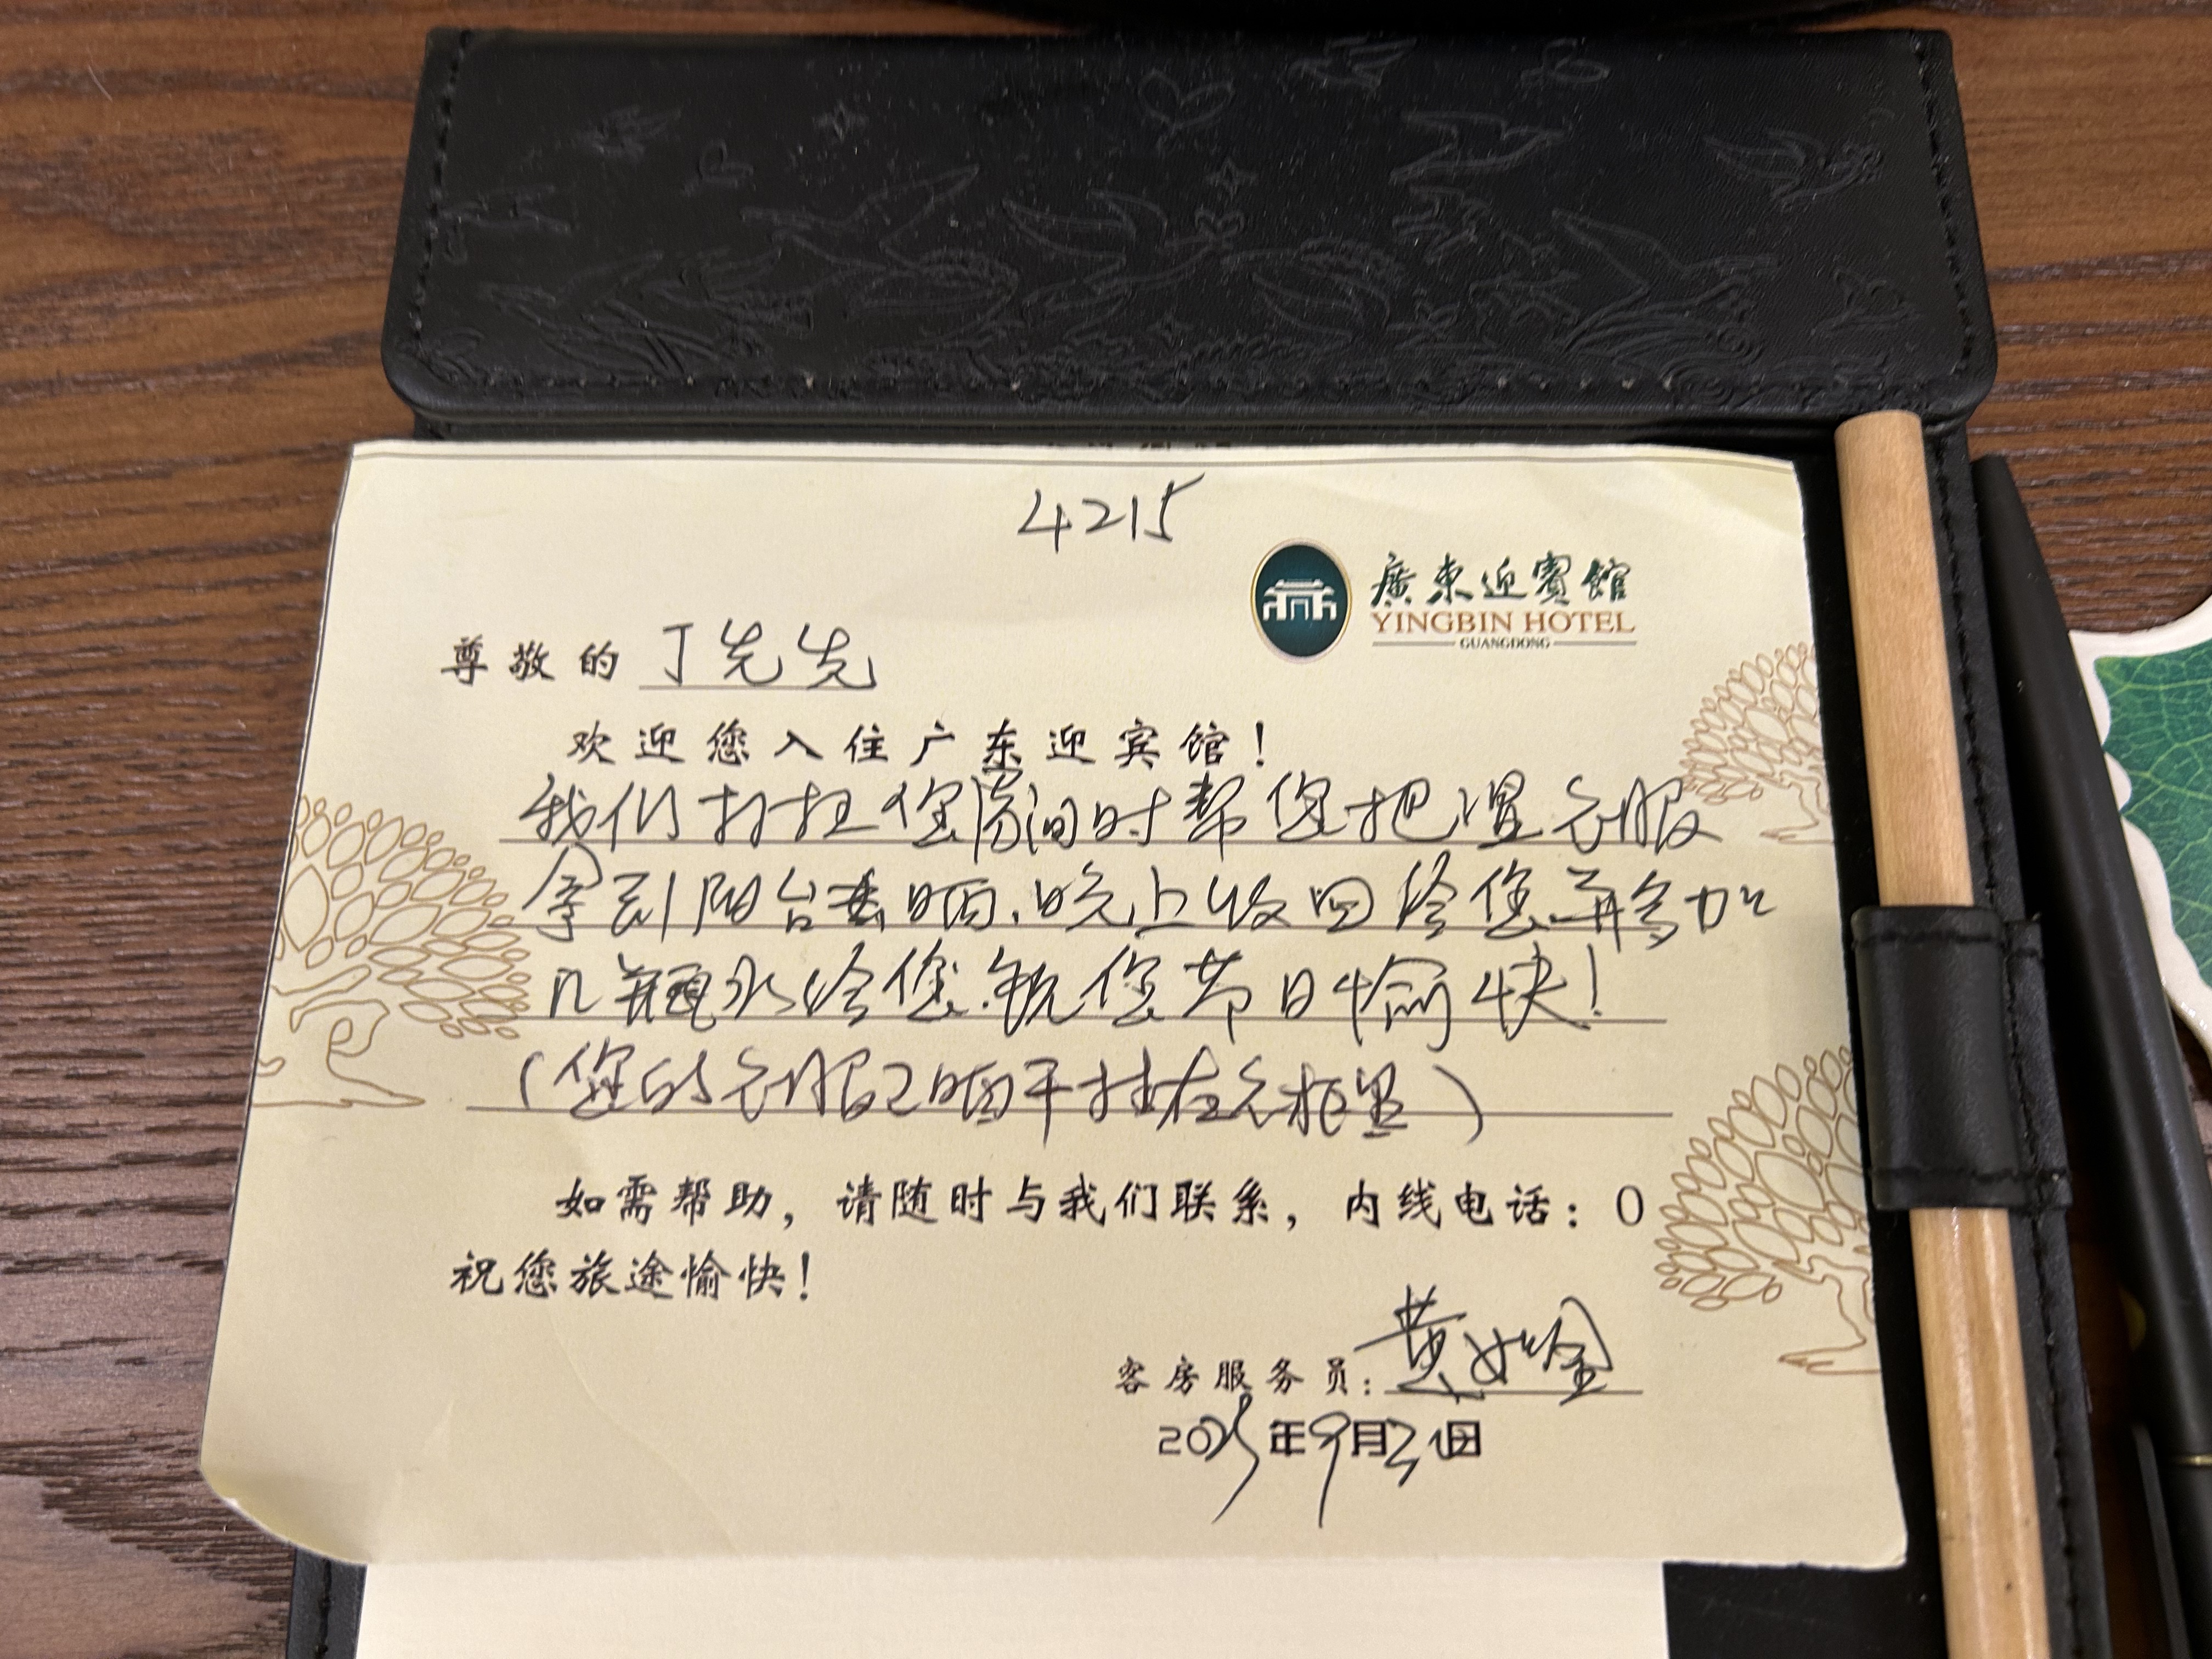 4215
廣東迎賓館
YINGBIN HOTEL
GUANGDONG
尊敬的 丁先生
欢迎您入住广东迎宾馆！
我们打扫您房间时帮您把湿衣服
拿到阳台去晒.晚上收回给您.并多加
几瓶水给您.祝您节日愉快！
（您的衣服已晒干挂在衣柜里）
如需帮助，请随时与我们联系，内线电话：0
祝您旅途愉快！
客房服务员：黄如金
2025年9月21日